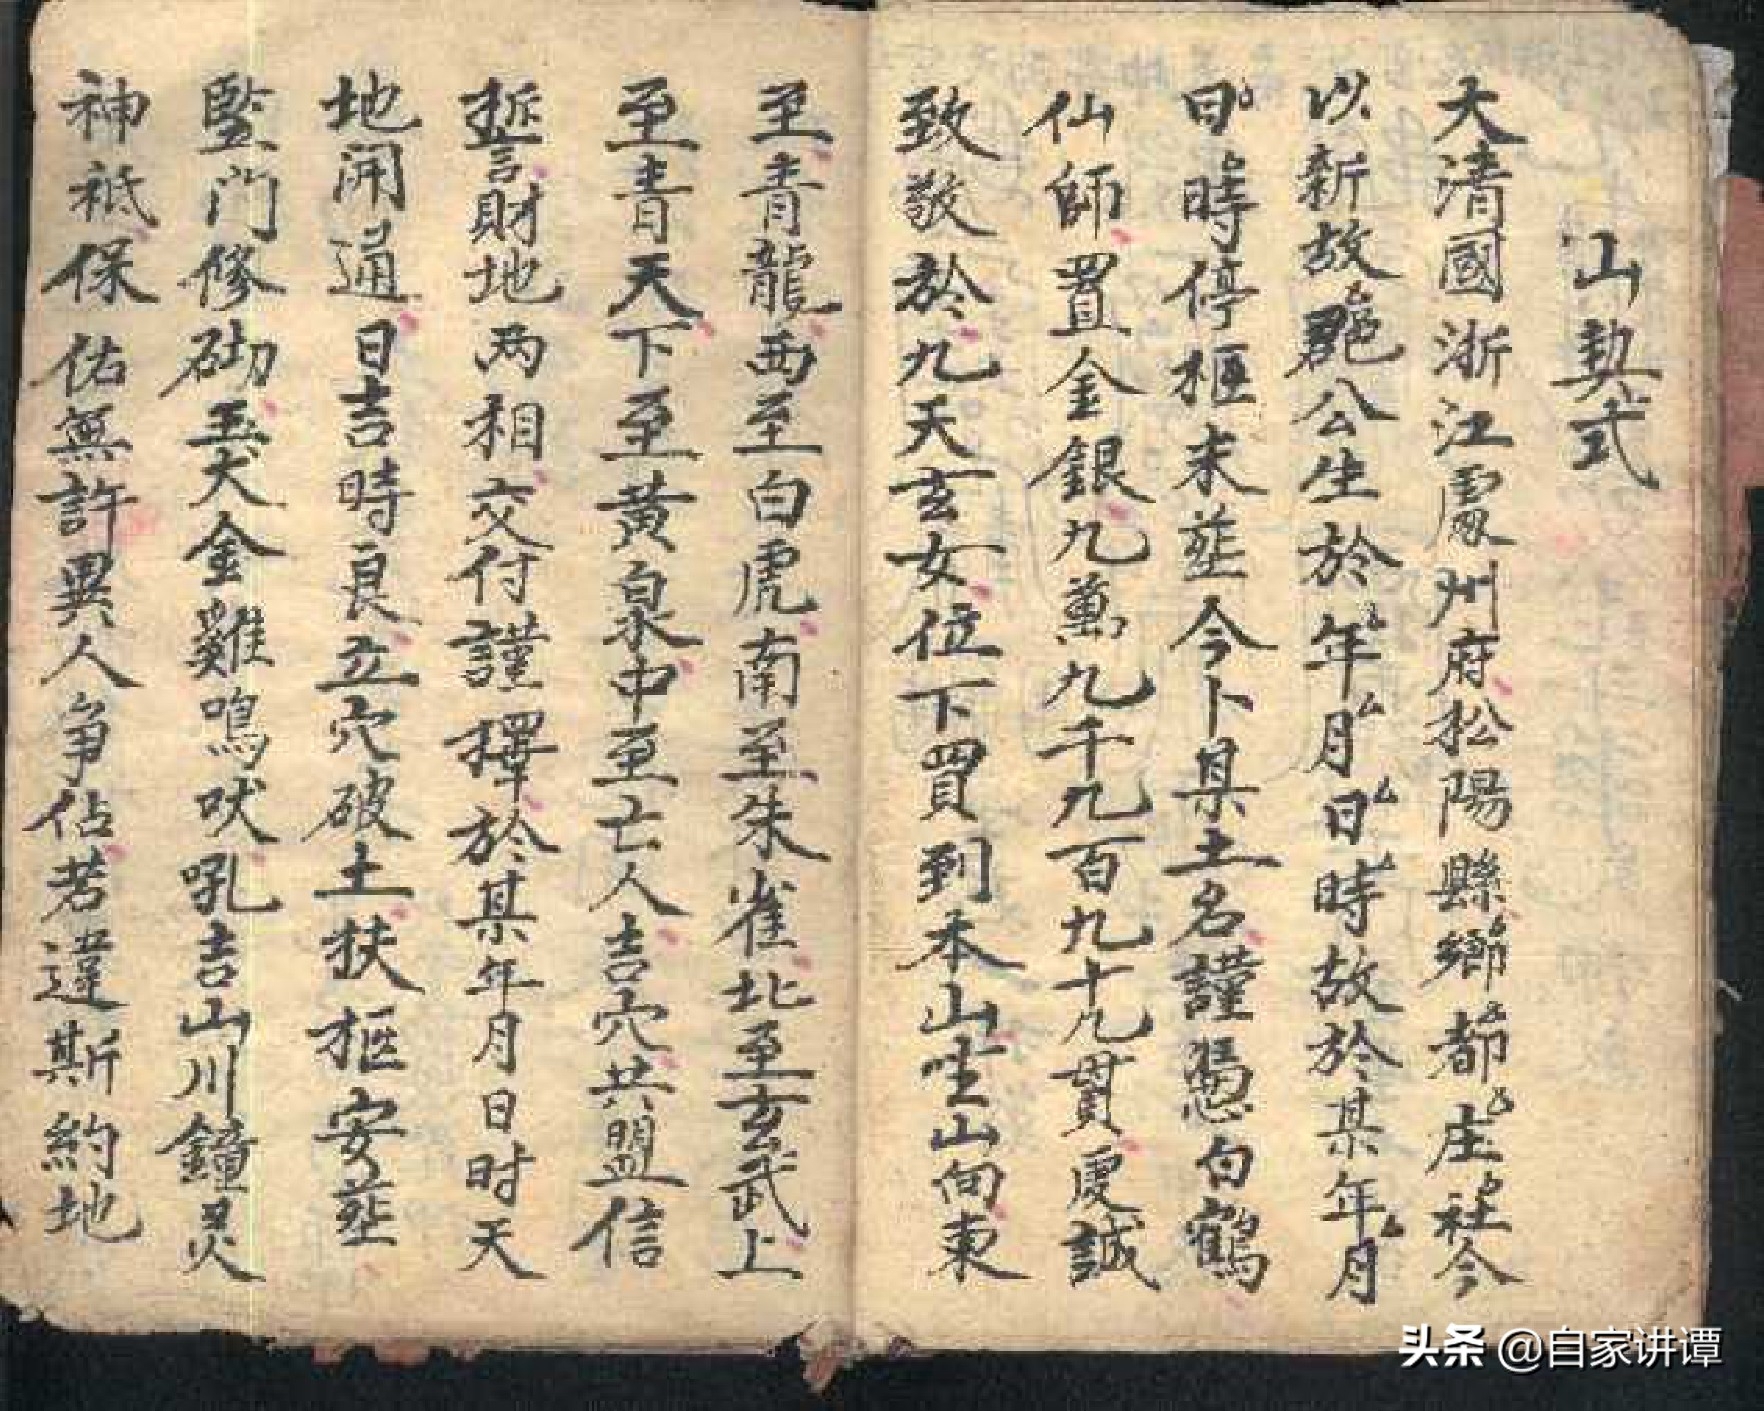 山契式
大清國浙江處州府松陽縣厶鄉厶都厶庄厶社今
以新故厶公生於厶年厶月厶日厶時故於某年厶月
厶日厶時停柩未塟今卜某土名謹憑白鶴
仙師置金銀九萬九千九百九十九貫虔誠
致敬於九天玄女位下買到本山坐山向東
至青龍西至白虎南至朱雀北至玄武上
至青天下至黃泉中至亡人吉穴共盟信
誓財地兩相交付謹擇於某年月日时天
地開通日吉時良立穴破土扶柩安塟
監門修砌玉犬金雞鳴吠吼吉山川鐘灵
神祇保佑無許異人争佔若違斯約地
头条 @自家讲谭